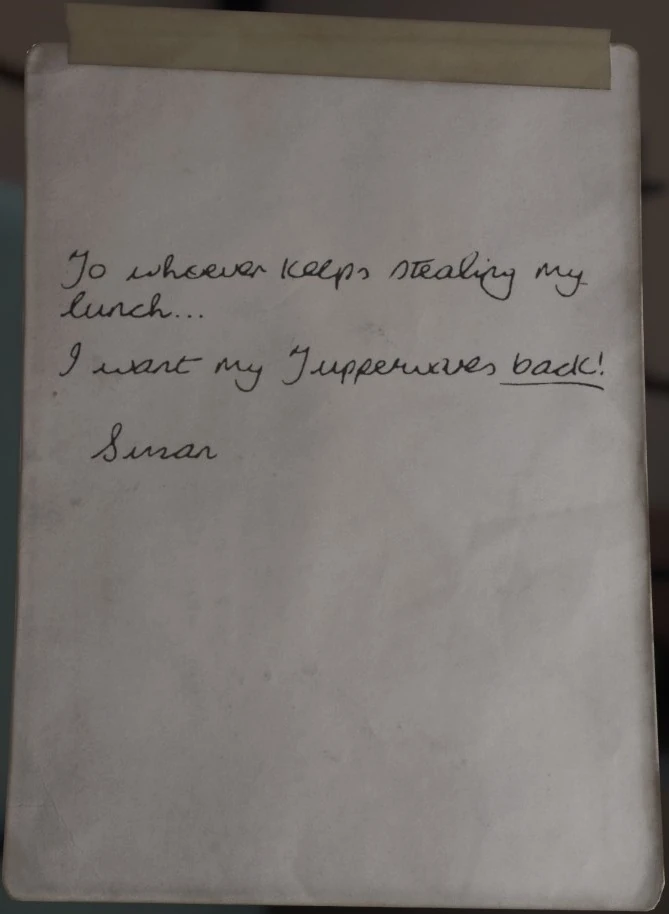 To whoever keeps stealing my
lunch...
I want my Tupperwares back!
Susan